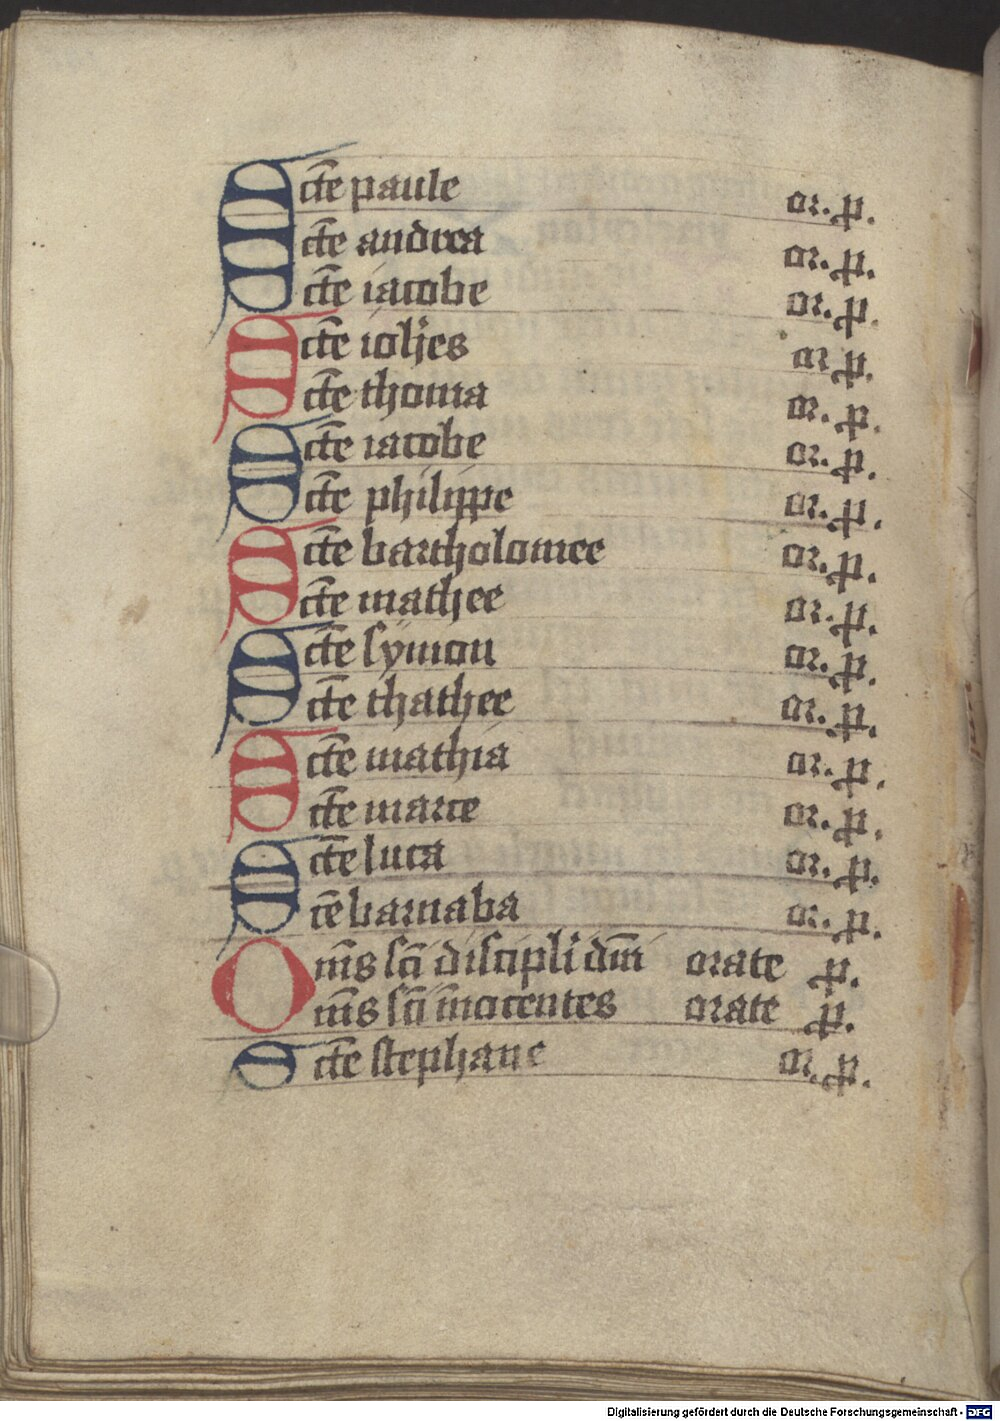 Scte paule or. p.
Scte andrea or. p.
Scte iacobe or. p.
Scte ioħes or p.
Scte thoma or. p.
Scte iacobe or. p.
Scte philippe or. p.
Scte bartholomee or. p.
Scte mathee or. p.
Scte symon or. p.
Scte thathee or. p.
Scte mathia or. p.
Scte marce or. p.
Scte luca or. p.
Scte barnaba or. p.
Om̄s sc̄i discipli dn̄i orate p.
Om̄s sc̄i īnocentes orate p.
Scte stephane or. p.
Digitalisierung gefördert durch die Deutsche Forschungsgemeinschaft - DFG